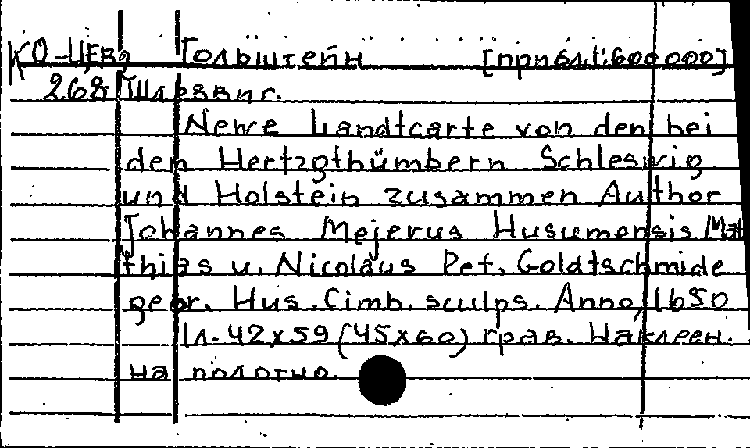 КО-Цевр Гольштейн [прибл.1:600000]
268 Шлезвиг.
Newe Landtcarte von den bei
den Hertzogthümbern Schleswig
und Holstein zusammen Author
Johannes Mejerus Husumensis Mat
thias u. Nicolaus Pet. Goldtschmide
gebr. Hus. Cimb. sculps. Anno, 1650
1л. 42x59 (45x60) грав. Наклеен.
на полотно.